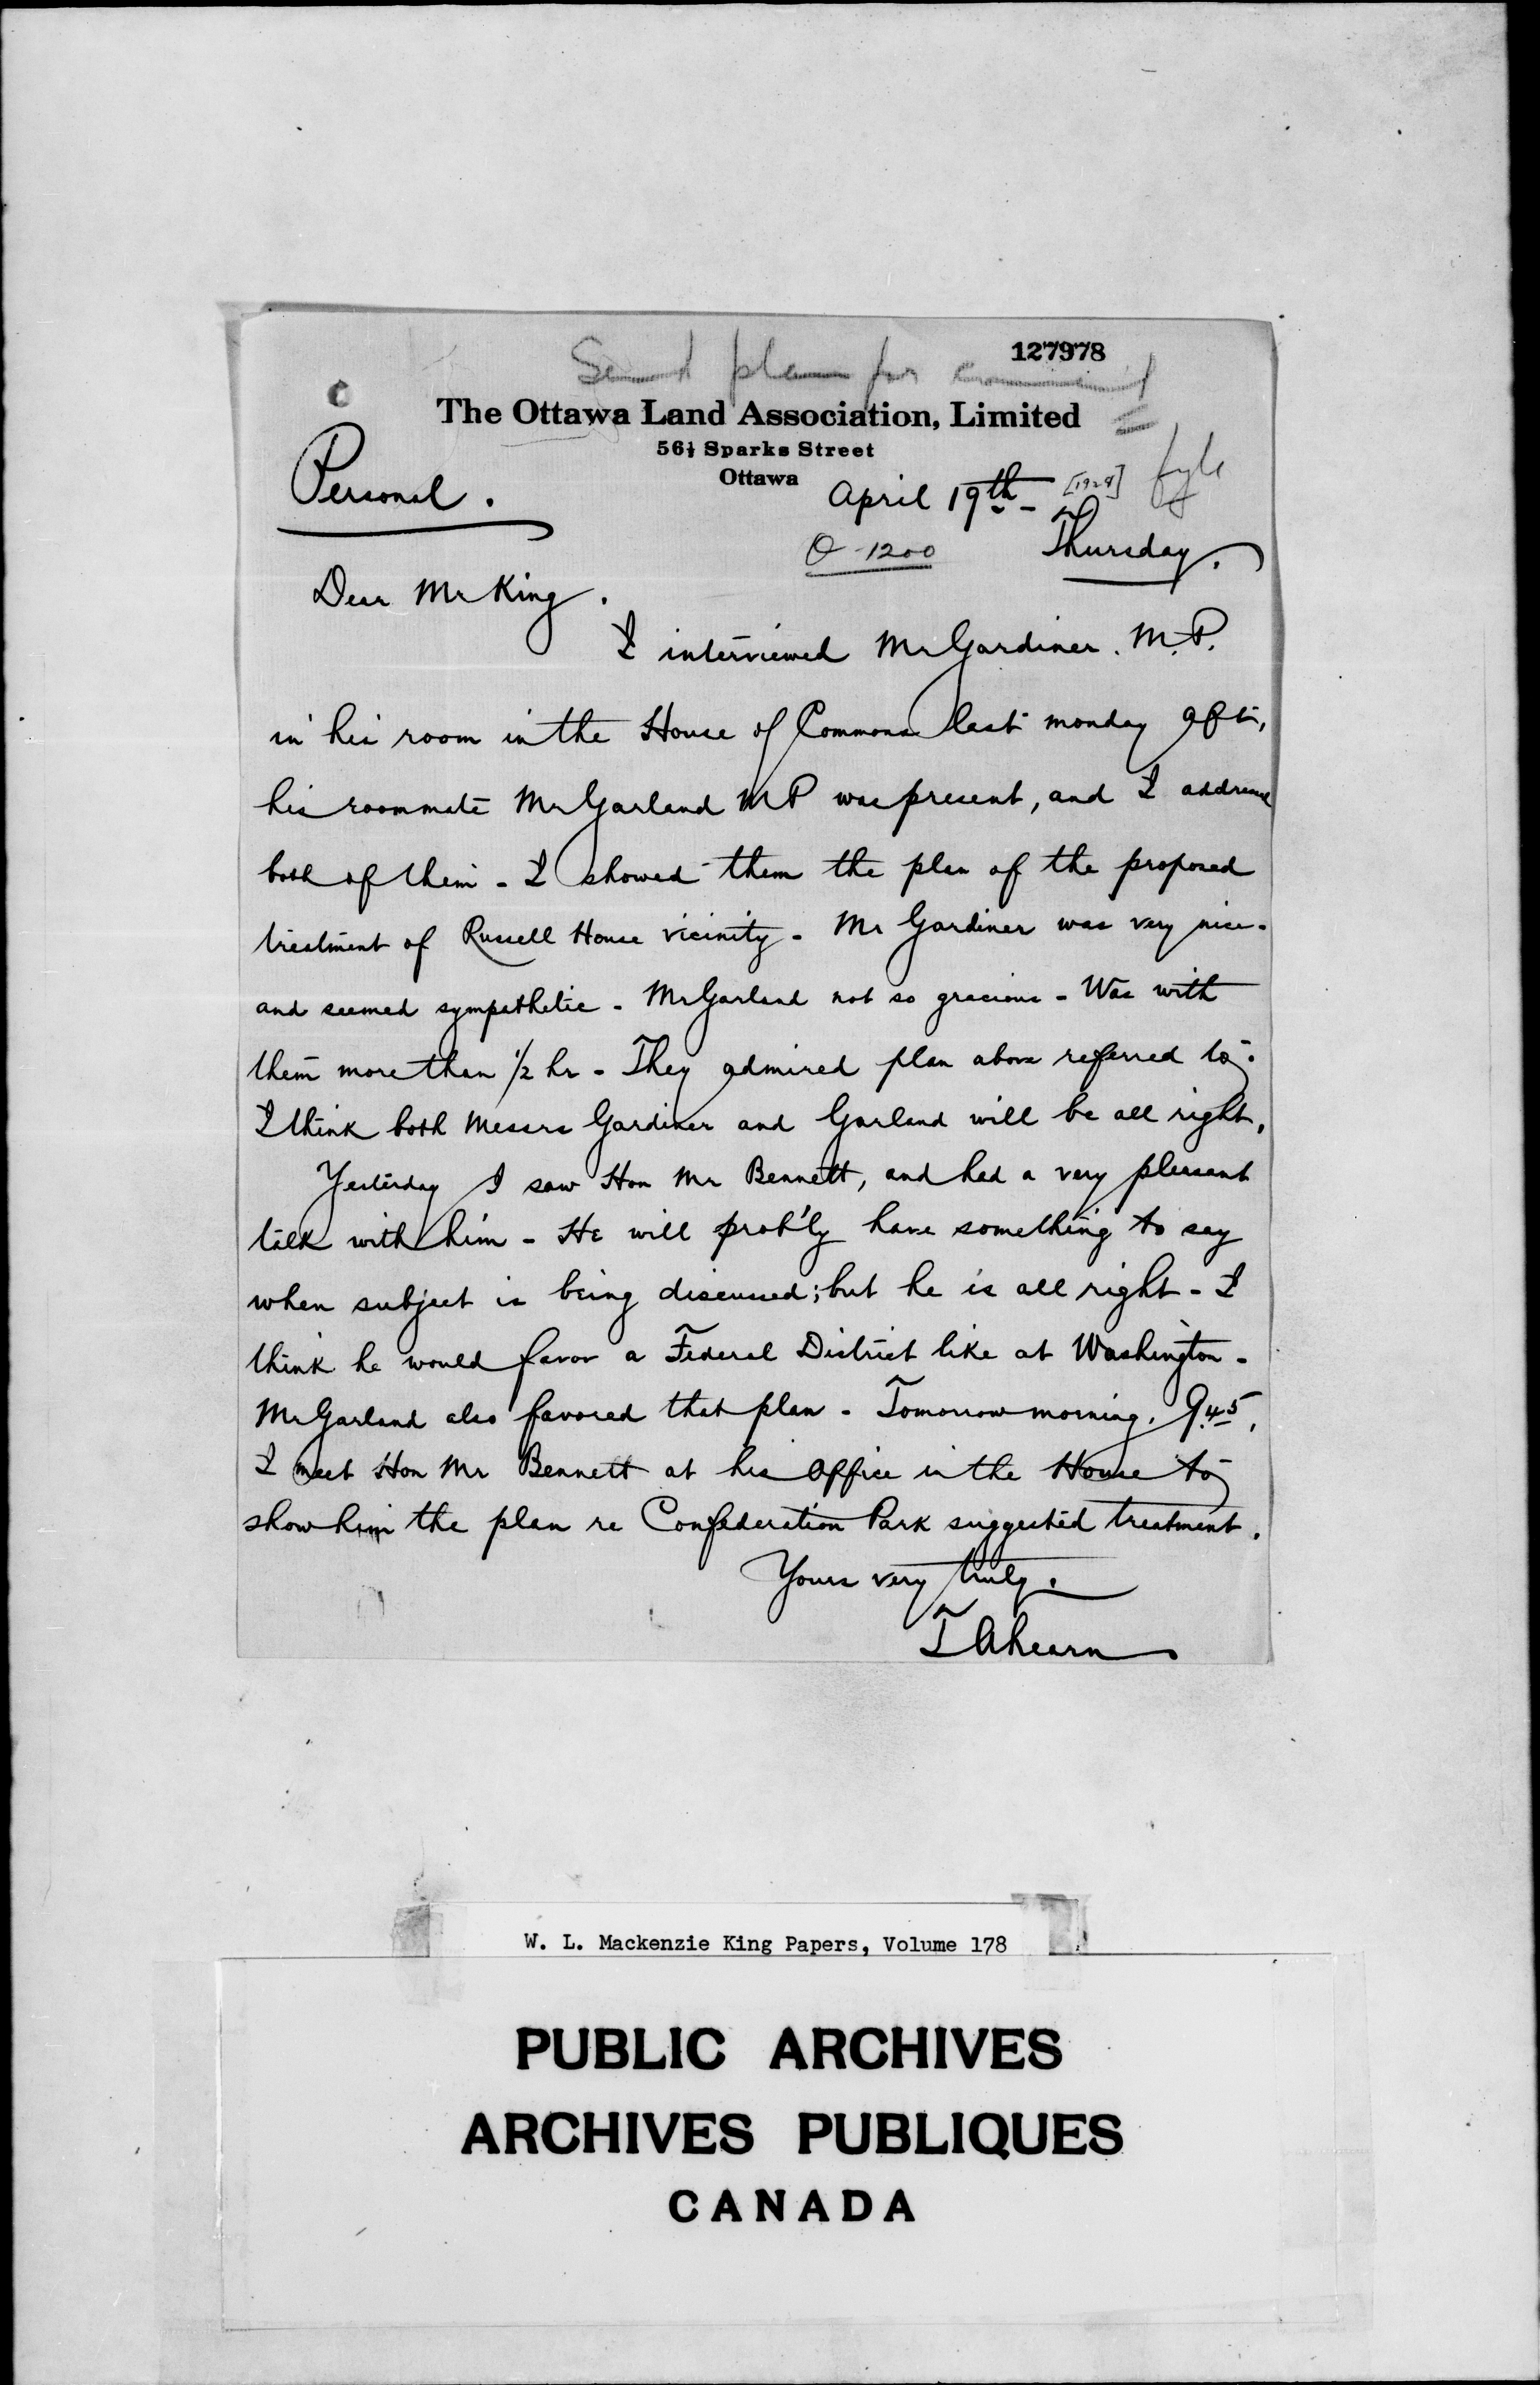 127978
Send plan for
The Ottawa Land Association, Limited
56½ Sparks Street
Ottawa
Personal.
April 19th - [1928] fyle
O-1200 Thursday.
Dear Mr King.
I interviewed Mr Gardiner. M.P.
in his room in the House of Commons last monday aft,
his roommate Mr Garland MP was present, and I addressed
both of them - I showed them the plan of the proposed
treatment of Russell House vicinity - Mr Gardiner was very nice -
and seemed sympathetic - Mr Garland not so gracious - Was with
them more than 1/2 hr - They admired plan above referred to -
I think both Messrs Gardiner and Garland will be all right.
Yesterday I saw Hon Mr Bennett, and had a very pleasant
talk with him - He will prob'ly have something to say
when subject is being discussed; but he is all right - I
think he would favor a Federal District like at Washington -
Mr Garland also favored that plan - Tomorrow morning. 9.45,
I meet Hon Mr Bennett at his office in the House to
show him the plan re Confederation Park suggested treatment.
Yours very truly.
T Ahearn
W. L. Mackenzie King Papers, Volume 178
PUBLIC ARCHIVES
ARCHIVES PUBLIQUES
CANADA